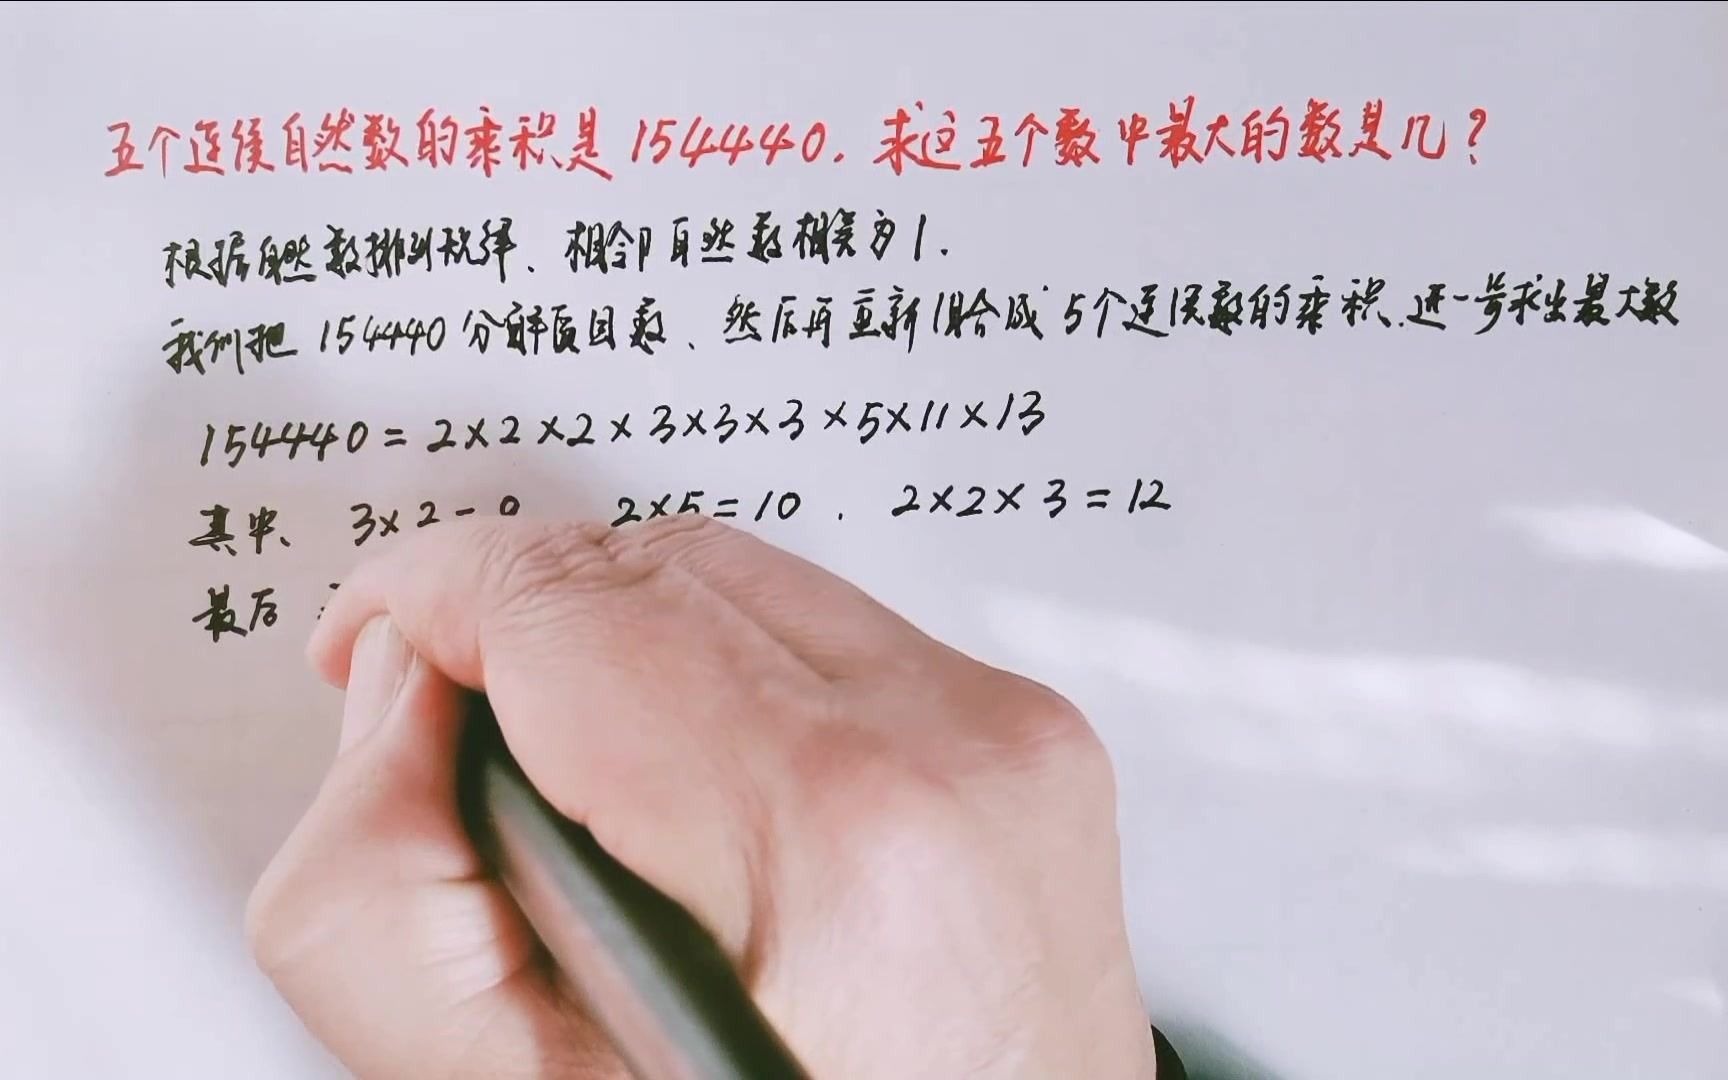 五个连续自然数的乘积是154440.求这五个数中最大的数是几?
根据自然数排列规律、相邻自然数相差为1.
我们把154440分解质因数、然后再重新组合成5个连续数的乘积.进一步求出最大数
154440=2×2×2×3×3×3×5×11×13
其中、3× 2×5=10. 2×2×3=12
最后